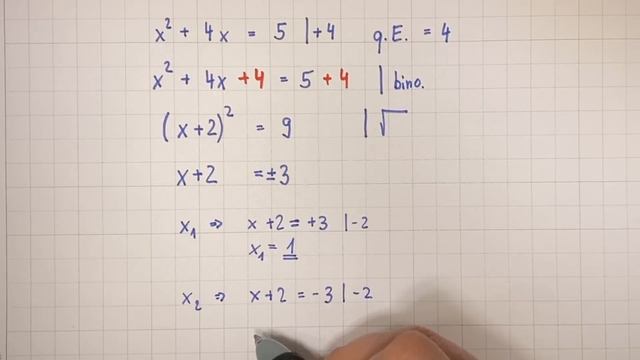 x² + 4x = 5 | +4 q.E. = 4
x² + 4x +4 = 5 +4 | bino.
(x+2)² = 9 | √
x+2 = ±3
x₁ ⇒ x +2 = +3 | -2
x₁ = 1
x₂ ⇒ x+2 = -3 | -2